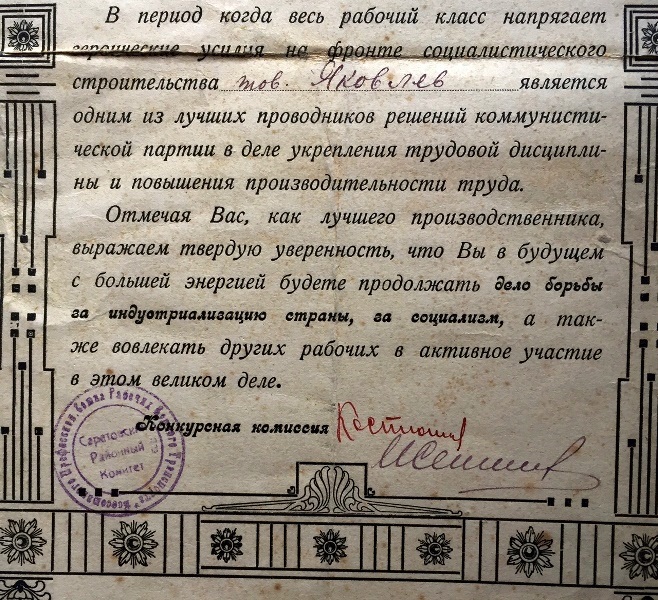 В период когда весь рабочий класс напрягает
героические усилия на фронте социалистического
строительства тов. Яковлев является
одним из лучших проводников решений коммунисти-
ческой партии в деле укрепления трудовой дисципли-
ны и повышения производительности труда.
Отмечая Вас, как лучшего производственника,
выражаем твердую уверенность, что Вы в будущем
с большей энергией будете продолжать дело борьбы
за индустриализацию страны, за социализм, а так-
же вовлекать других рабочих в активное участие
в этом великом деле.
Конкурсная комиссия
Районный
Комитет